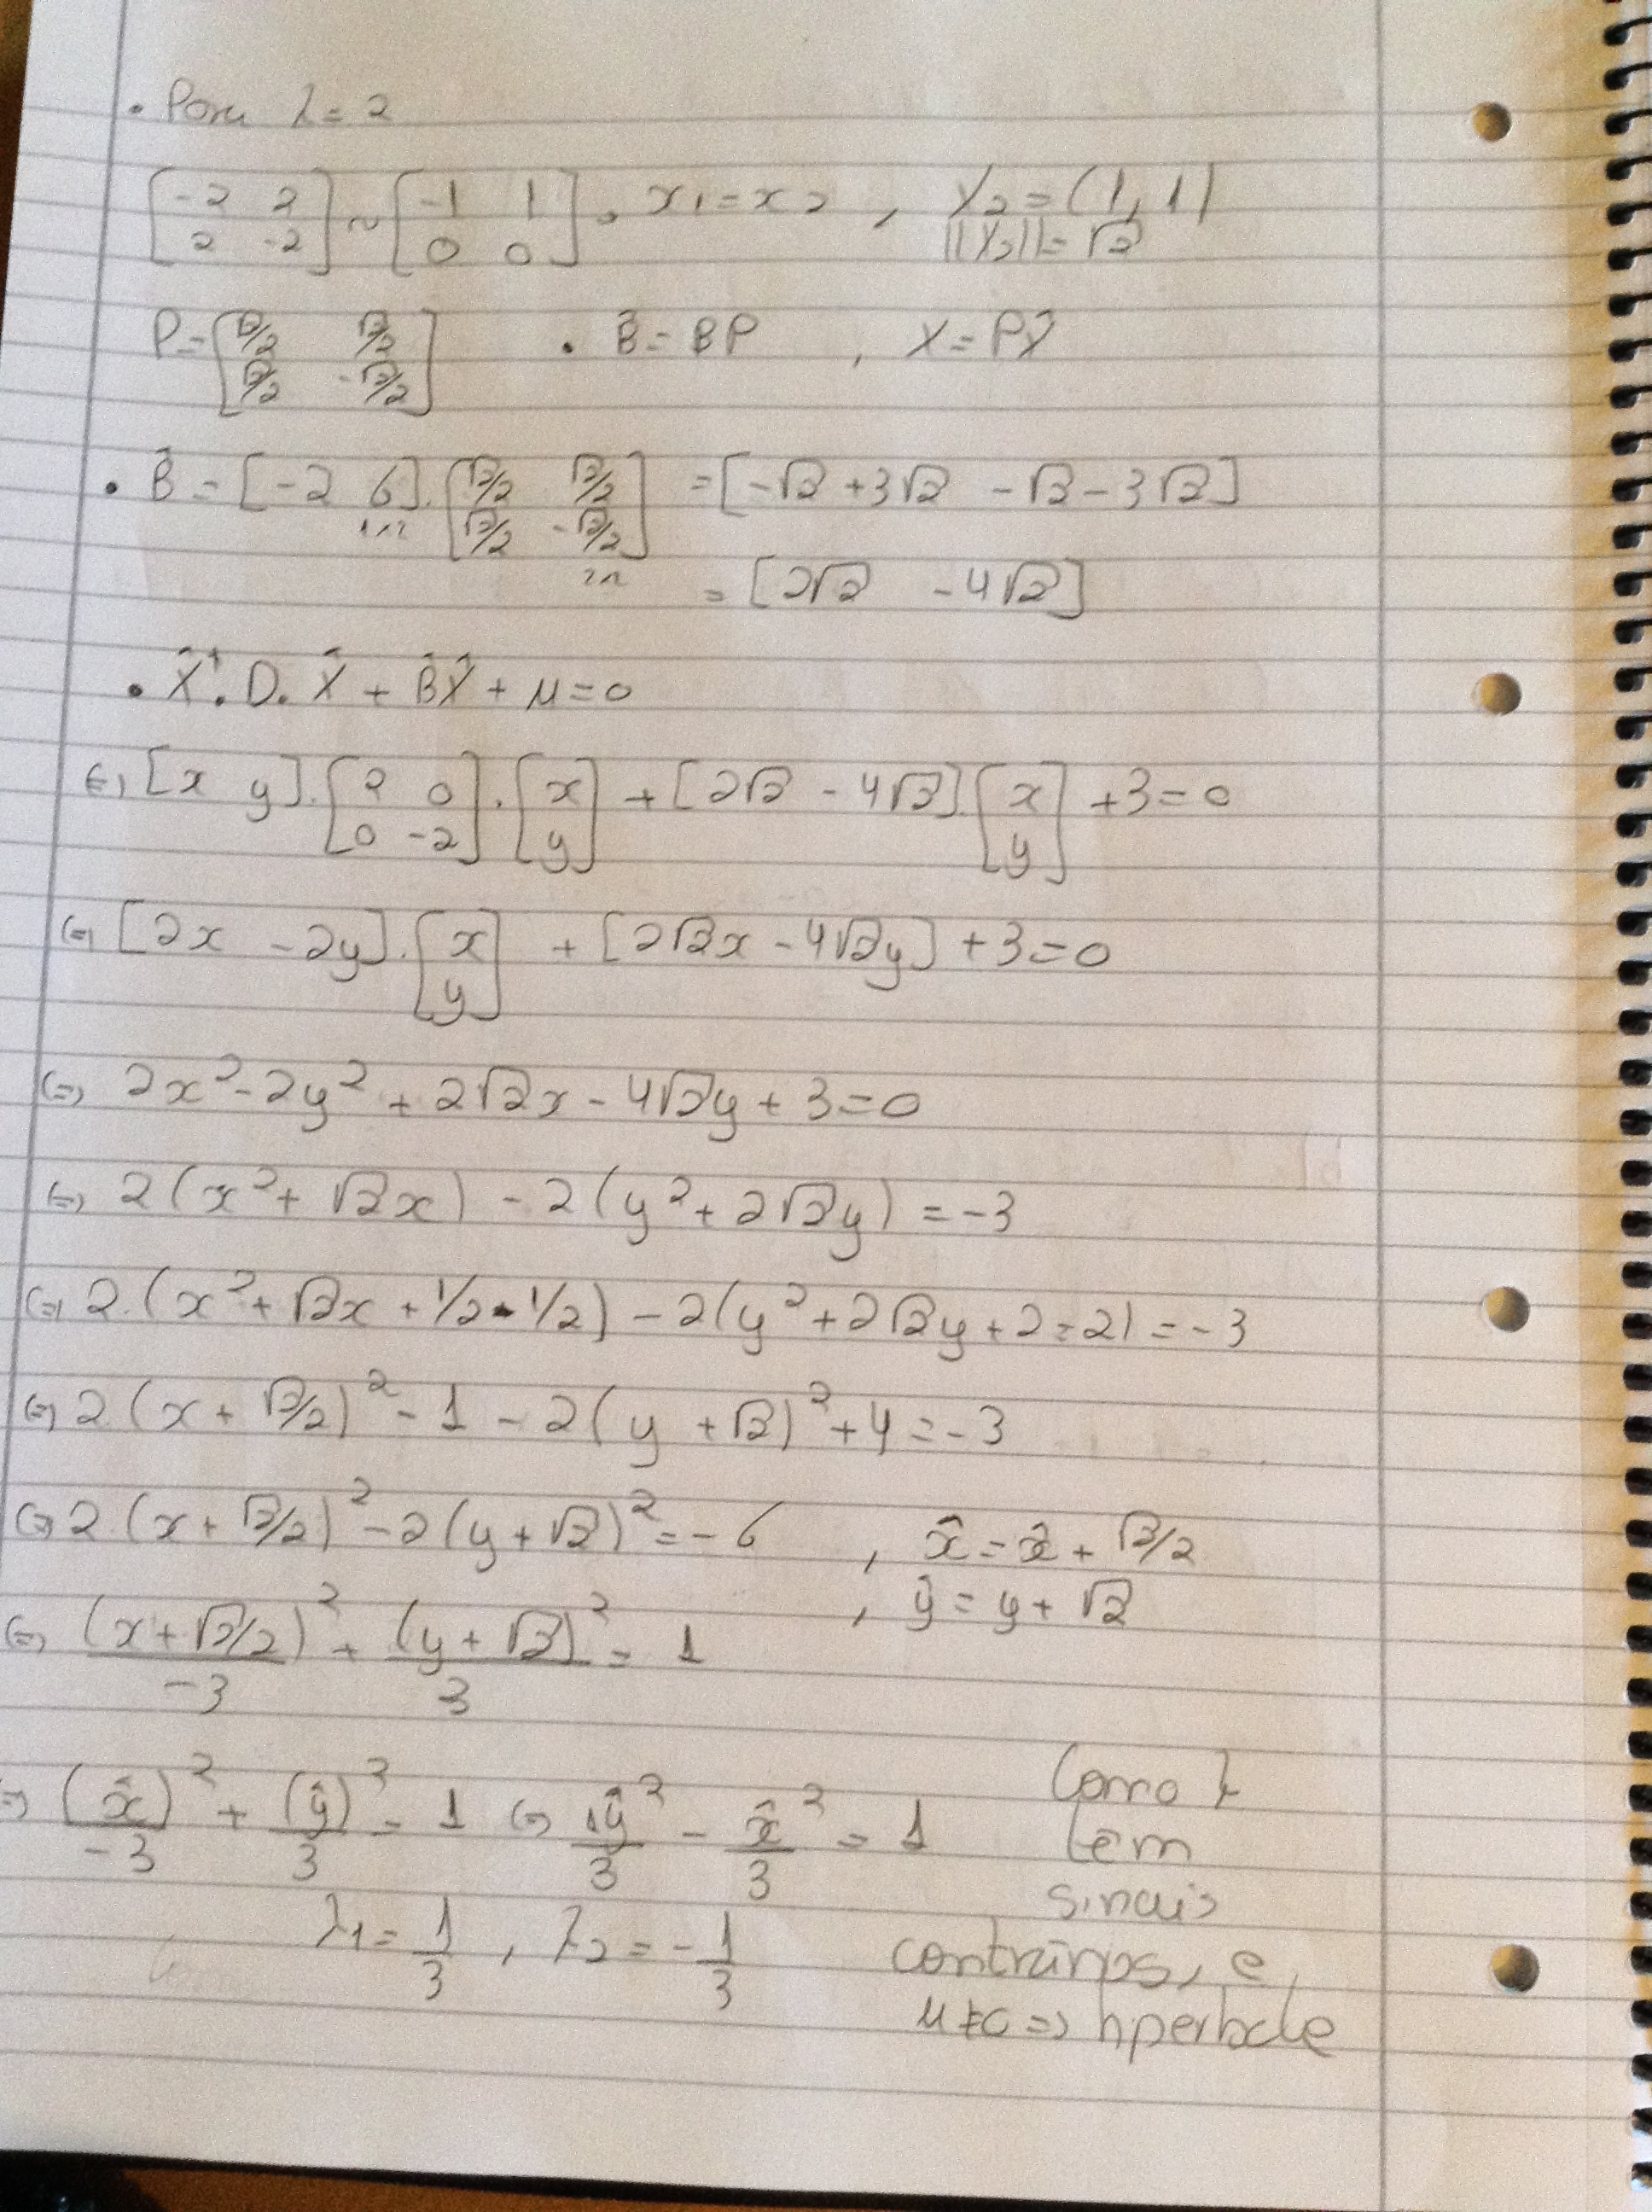 • Para λ = 2
[-2 2; 2 -2] ~ [-1 1; 0 0] • x1 = x2 , X2 = (1, 1)
||X2|| = √2
P = [√2/2 √2/2; √2/2 -√2/2] • B̂ = BP , X = PX̂
• B̂ = [-2 6] . [√2/2 √2/2; √2/2 -√2/2] = [-√2 + 3√2 -√2 - 3√2]
1x2 2x2
= [2√2 -4√2]
• X̂ᵗ. D. X̂ + B̂X̂ + μ = 0
(=) [x y] . [2 0; 0 -2] . [x; y] + [2√2 - 4√2] [x; y] + 3 = 0
(=) [2x - 2y] . [x; y] + [2√2x - 4√2y] + 3 = 0
(=) 2x² - 2y² + 2√2x - 4√2y + 3 = 0
(=) 2(x² + √2x) - 2(y² + 2√2y) = -3
(=) 2.(x² + √2x + 1/2 - 1/2) - 2(y² + 2√2y + 2 - 2) = -3
(=) 2(x + √2/2)² - 1 - 2(y + √2)² + 4 = -3
(=) 2.(x + √2/2)² - 2(y + √2)² = -6 , x̂ = x̂ + √2/2
, ŷ = y + √2
(=) (x + √2/2)²/-3 + (y + √2)²/3 = 1
(=) (x̂)²/-3 + (ŷ)²/3 = 1 (=) 1ŷ²/3 - x̂²/3 = 1
λ1 = 1/3 , λ2 = -1/3
Como λ
têm
sinais
contrários, e
μ ≠ 0 => hperbole